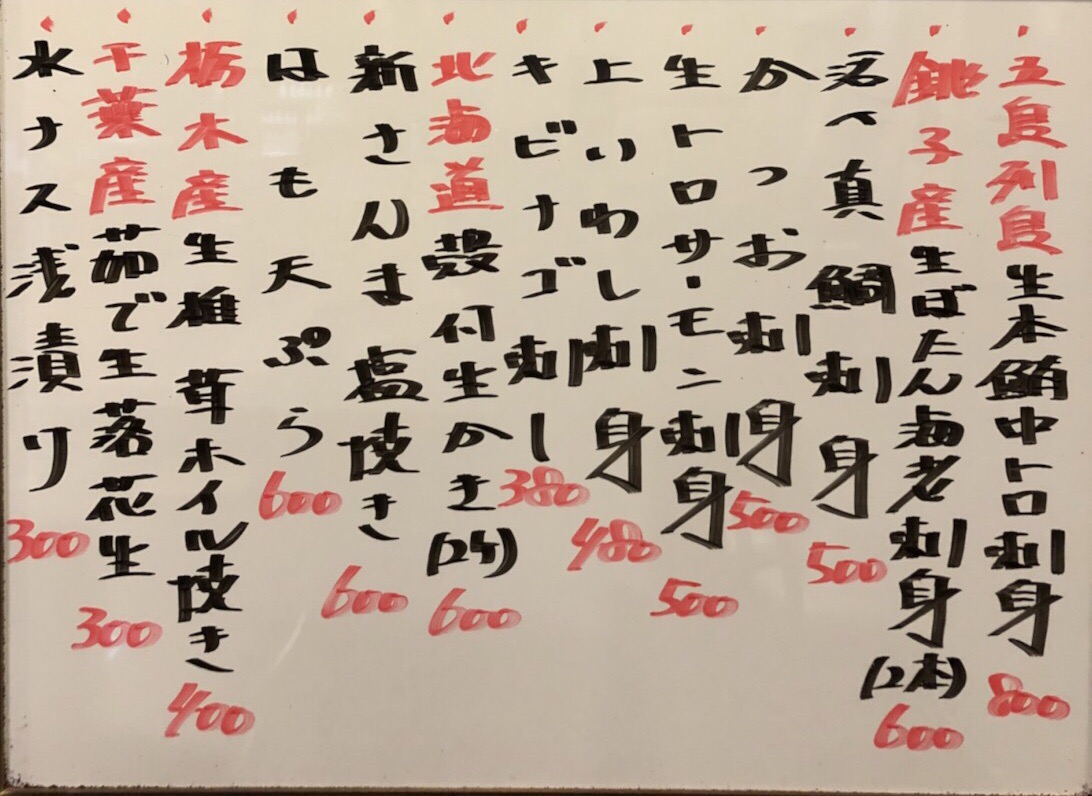 五島列島生本鮪中トロ刺身 800
銚子産生ぼたん海老刺身(2本) 600
活〆真鯛刺身 500
かつお刺身 500
生トロサーモン刺身 500
上いわし刺身 480
キビナゴ刺し 380
北海道殻付生かき(2ケ) 600
新さんま塩焼き 600
はも天ぷら 600
栃木産生椎茸ホイル焼き 400
千葉産茹で生落花生 300
水ナス浅漬り 300